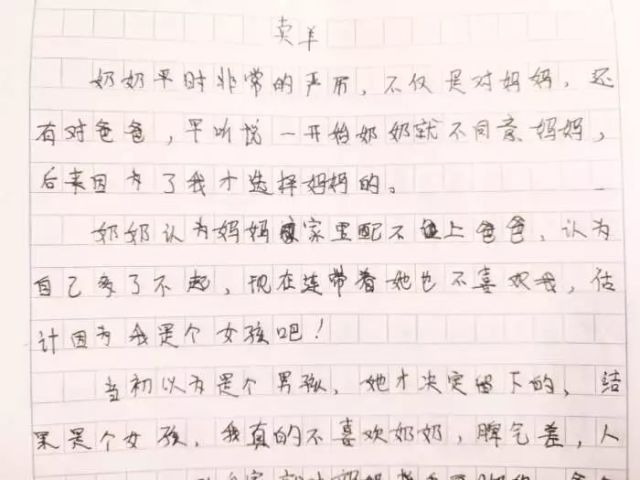 卖羊
奶奶平时非常的严厉，不仅是对妈妈，还
有对爸爸，早听说一开始奶奶就不同意妈妈，
后来因为了我才选择妈妈的。
奶奶认为妈妈家里配不上爸爸，认为
自己多了不起，现在连带着她也不喜欢我，估
计因为我是个女孩吧！
当初以为是个男孩，她才决定留下的，结
果是个女孩，我真的不喜欢奶奶，脾气差，人